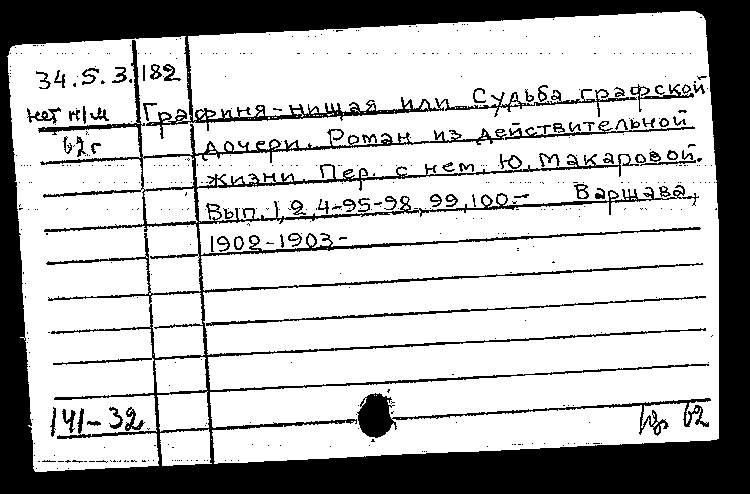 34.5.3.182
нет н/м Графиня-нищая или Судьба графской
62г дочери. Роман из действительной
жизни. Пер. с нем. Ю. Макаровой.
Вып. 1, 2, 4-95-98, 99, 100.- Варшава,
1902-1903-
141-32 62